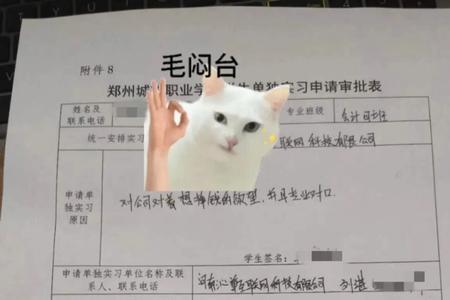 附件8
毛闷台
郑州城 职业学 生单独实习申请审批表
姓名及
联系电话
专业班级
会计
统一安排实习
联网科技有限公司
申请单
独实习
原因
对公司对 想挣钱的欲望,并且专业对口
学生签名
申请单独实习单位名称及联
系人、联系电话
互联网科技有限公司